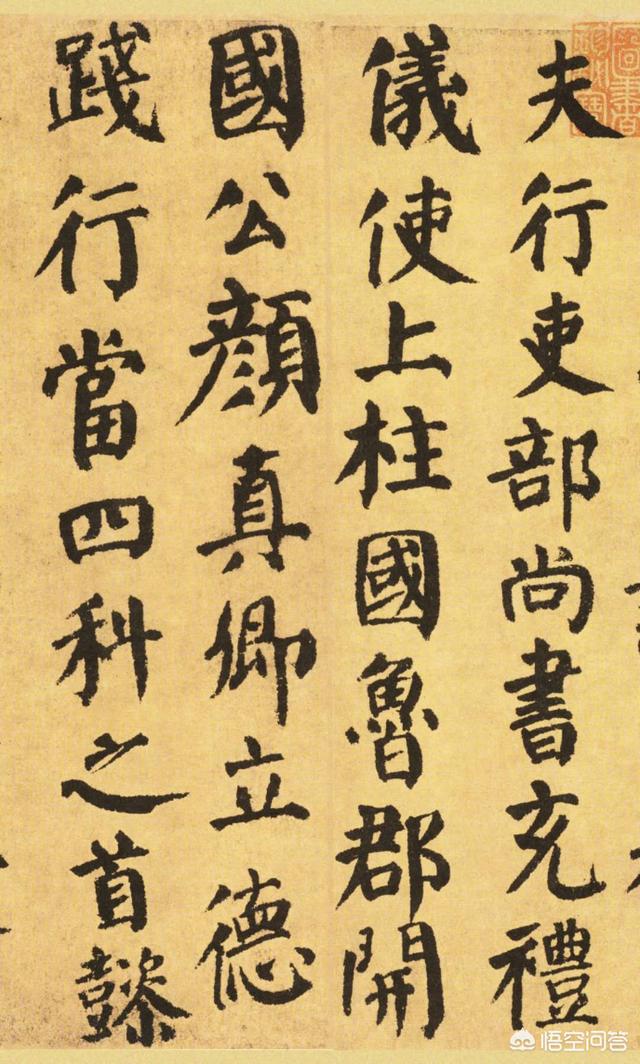 夫行吏部尚書充禮
儀使上柱國魯郡開
國公顏真卿立德
踐行當四科之首懿
悟空问答